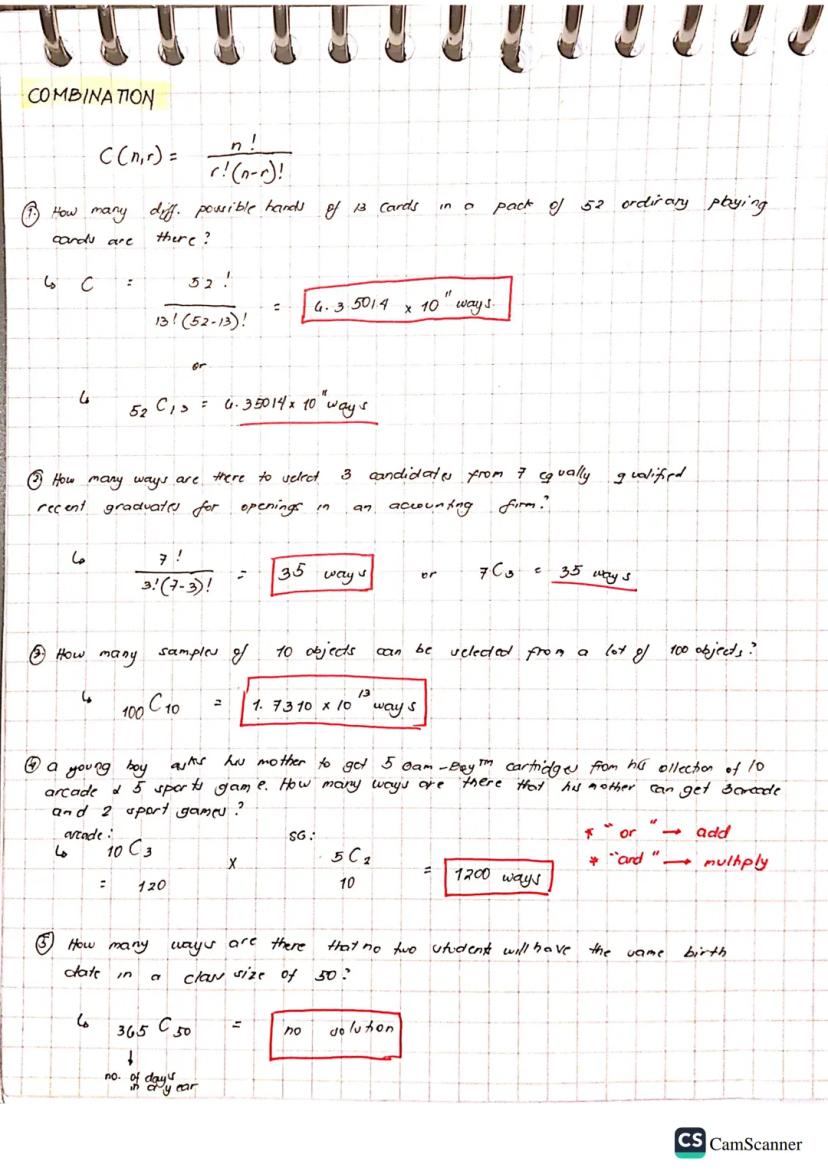 COMBINATION
C(n,r) = n! / r!(n-r)!
① How many diff. possible hands of 13 cards in a pack of 52 ordinary playing
cards are there?
↳ C = 52! / 13!(52-13)! = 4.35014 x 10¹¹ ways.
or
↳ 52 C 13 = 4.35014 x 10¹¹ ways
② How many ways are there to select 3 candidates from 7 equally qualified
recent graduates for openings in an accounting firm?
↳ 7! / 3!(7-3)! = 35 ways or 7C3 = 35 ways
③ How many samples of 10 objects can be selected from a lot of 100 objects?
↳ 100 C 10 = 1.7310 x 10¹³ ways
④ a young boy asks his mother to get 5 Gam-Boy™ cartridges from his ollection of 10
arcade & 5 sports game. How many ways are there that his mother can get 3 arcade
and 2 sport games?
arcade: SG:
↳ 10 C 3 x 5 C 2 = 1200 ways
= 120 10
* "or" → add
* "and" → multiply
⑤ How many ways are there that no two students will have the same birth
date in a class size of 50?
↳ 365 C 50 = no solution
↓
no. of days
in a year
CS CamScanner